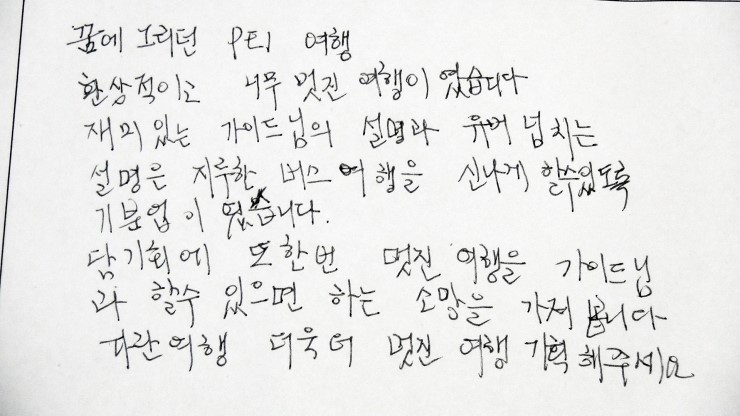 꿈에 그리던 PEI 여행
환상적이고 너무 멋진 여행이 였습니다
재미 있는 가이드님의 설명과 유머 넘치는
설명은 지루한 버스여행을 신나게 할수있도록
기분업이 됬습니다.
담기회에 또한번 멋진 여행을 가이드님
과 할수 있으면 하는 소망을 가져 봅니다
파란여행 더욱더 멋진 여행 기획 해주세요